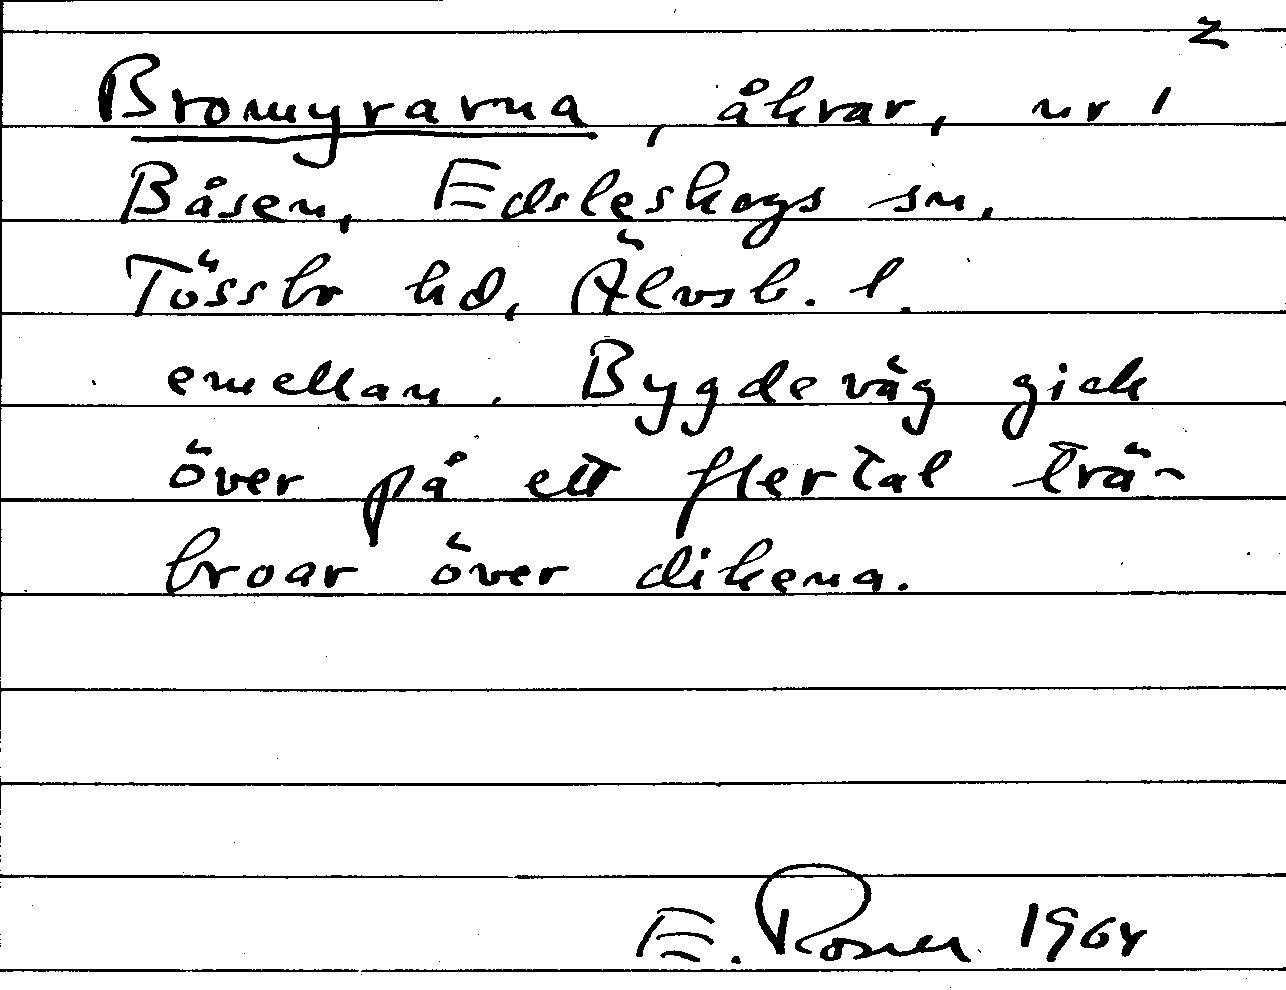 2
Bromyrarna, åkrar, nr 1
Båsen, Edsleskogs sn.
Tössbo hd, Älvsb. l.
emellan. Bygdeväg gick
över på ett flertal trä-
broar över dikena.
E. 1964